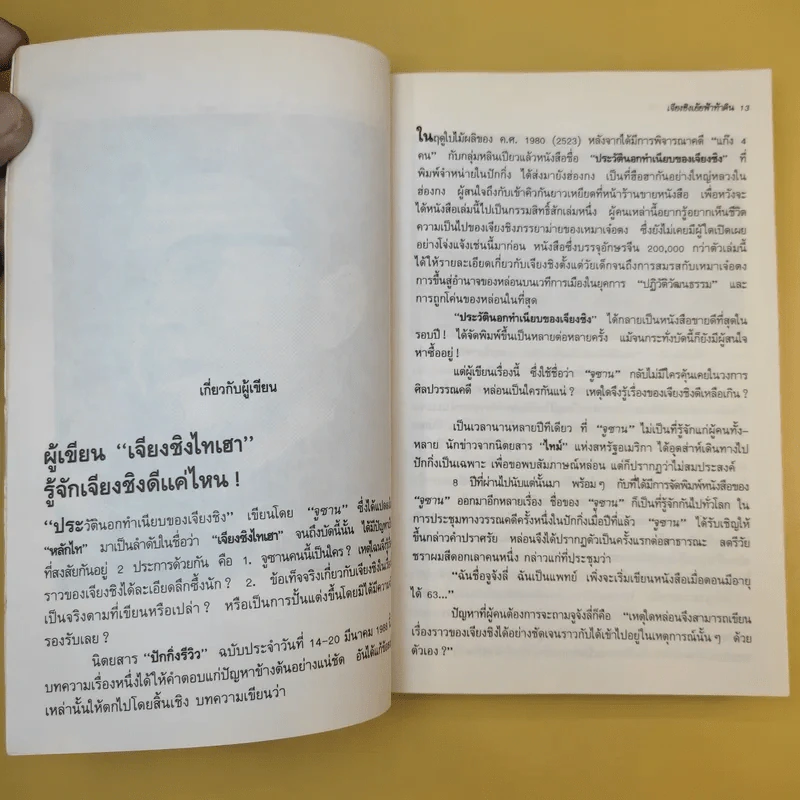 เกี่ยวกับผู้เขียน
ผู้เขียน “เจียงชิงไทเฮา”
รู้จักเจียงชิงดีแค่ไหน !
“ประวัตินอกทำเนียบของเจียงชิง” เขียนโดย “จูซาน” ซึ่งได้แปลลง
“หลักไท” มาเป็นลำดับในชื่อว่า “เจียงชิงไทเฮา” จนถึงบัดนี้นั้น ได้มีปัญหา
ที่สงสัยกันอยู่ 2 ประการด้วยกัน คือ 1. จูซานคนนี้เป็นใคร ? เหตุไฉนถึงรู้
ราวของเจียงชิงได้ละเอียดลึกซึ้งนัก ? 2. ข้อเท็จจริงเกี่ยวกับเจียงชิง
เป็นจริงตามที่เขียนหรือเปล่า ? หรือเป็นการปั้นแต่งขึ้นโดยมิได้มีความ
รองรับเลย ?
นิตยสาร “ปักกิ่งรีวิว” ฉบับประจำวันที่ 14-20 มีนาคม
บทความเรื่องหนึ่งได้ให้คำตอบแก่ปัญหาข้างต้นอย่างแน่ชัด อันได้แก้
เหล่านั้นให้ตกไปโดยสิ้นเชิง บทความเขียนว่า
เจียงชิงเย้ยฟ้าท้าดิน 13
ในฤดูใบไม้ผลิของ ค.ศ. 1980 (2523) หลังจากได้มีการพิจารณาคดี “แก๊ง 4
คน” กับกลุ่มหลินเปียวแล้วหนังสือชื่อ “ประวัตินอกทำเนียบของเจียงชิง” ที่
พิมพ์จำหน่ายในปักกิ่ง ได้ส่งมายังฮ่องกง เป็นที่ฮือฮากันอย่างใหญ่หลวงใน
ฮ่องกง ผู้สนใจถึงกับเข้าคิวกันยาวเหยียดที่หน้าร้านขายหนังสือ เพื่อหวังจะ
ได้หนังสือเล่มนี้ไปเป็นกรรมสิทธิ์สักเล่มหนึ่ง ผู้คนเหล่านี้อยากรู้อยากเห็นชีวิต
ความเป็นไปของเจียงชิงภรรยาม่ายของเหมาเจ๋อตง ซึ่งยังไม่เคยมีผู้ใดเปิดเผย
อย่างโจ่งแจ้งเช่นนี้มาก่อน หนังสือซึ่งบรรจุอักษรจีน 200,000 กว่าตัวเล่มนี้
ได้ให้รายละเอียดเกี่ยวกับเจียงชิงตั้งแต่วัยเด็กจนถึงการสมรสกับเหมาเจ๋อตง
การขึ้นสู่อำนาจของหล่อนบนเวทีการเมืองในยุคการ “ปฏิวัติวัฒนธรรม” และ
การถูกโค่นของหล่อนในที่สุด
“ประวัตินอกทำเนียบของเจียงชิง” ได้กลายเป็นหนังสือขายดีที่สุดใน
รอบปี ! ได้จัดพิมพ์ขึ้นเป็นหลายต่อหลายครั้ง แม้จนกระทั่งบัดนี้ก็ยังมีผู้สนใจ
หาซื้ออยู่ !
แต่ผู้เขียนเรื่องนี้ ซึ่งใช้ชื่อว่า “จูซาน” กลับไม่มีใครคุ้นเคยในวงการ
ศิลปวรรณคดี หล่อนเป็นใครกันแน่ ? เหตุใดจึงรู้เรื่องของเจียงชิงดีเหลือเกิน ?
เป็นเวลานานหลายปีทีเดียว ที่ “จูซาน” ไม่เป็นที่รู้จักแก่ผู้คนทั้ง-
หลาย นักข่าวจากนิตยสาร “ไทม์” แห่งสหรัฐอเมริกา ได้อุตส่าห์เดินทางไป
ปักกิ่งเป็นเฉพาะ เพื่อขอพบสัมภาษณ์หล่อน แต่ก็ปรากฏว่าไม่สมประสงค์
8 ปีที่ผ่านไปนับแต่นั้นมา พร้อม ๆ กับที่ได้มีการจัดพิมพ์หนังสือของ
“จูซาน” ออกมาอีกหลายเรื่อง ชื่อของ “จูซาน” ก็เป็นที่รู้จักกันไปทั่วโลก ใน
การประชุมทางวรรณคดีครั้งหนึ่งในปักกิ่งเมื่อปีที่แล้ว “จูซาน” ได้รับเชิญให้
ขึ้นกล่าวคำปราศรัย หล่อนจึงได้ปรากฏตัวเป็นครั้งแรกต่อสาธารณะ สตรีวัย
ชราผมสีดอกเลาคนหนึ่ง กล่าวแก่ที่ประชุมว่า
“ฉันชื่อจูจังลี่ ฉันเป็นแพทย์ เพิ่งจะเริ่มเขียนหนังสือเมื่อตอนมีอายุ
ได้ 63...”
ปัญหาที่ผู้คนต้องการจะถามจูจังลี่ก็คือ “เหตุใดหล่อนจึงสามารถเขียน
เรื่องราวของเจียงชิงได้อย่างชัดเจนราวกับได้เข้าไปอยู่ในเหตุการณ์นั้น ๆ ด้วย
ตัวเอง ?”